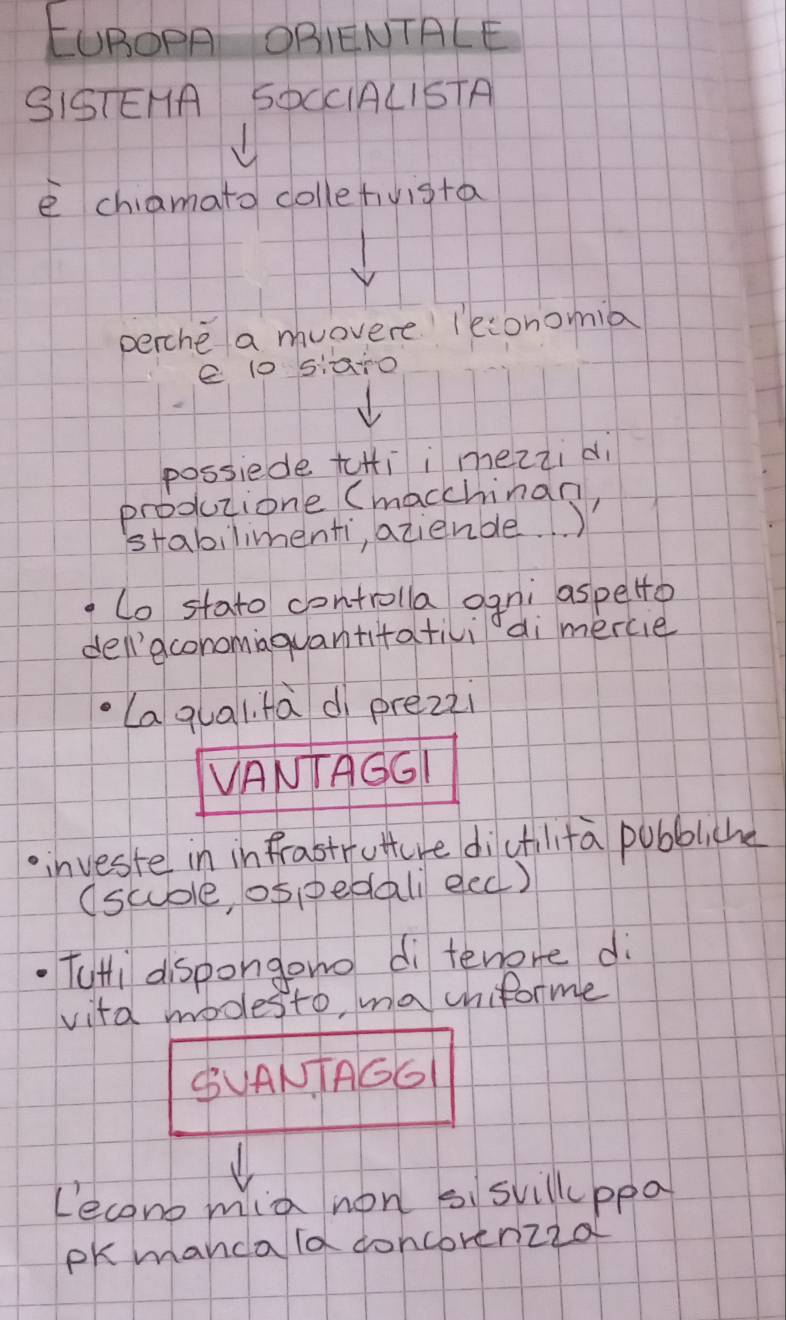 EUROPA ORIENTALE
SISTEMA SOCCIALISTA
è chiamato colletivista
perchè a muovere l'economia
e lo stato
possiede tutti i mezzi di
produzione (macchinari,
stabilimenti, aziende...)
• Lo stato controlla ogni aspetto
dell'aconomiaquantitativi di mercie
• La qualità di prezzi
VANTAGGI
• investe in infrastrutture di utilità pubbliche
(scuole, ospedali ecc)
• Tutti dispongono di tenore di
vita modesto, ma uniforme
SVANTAGGI
L'economia non si sviluppa
pk manca la concorenzza